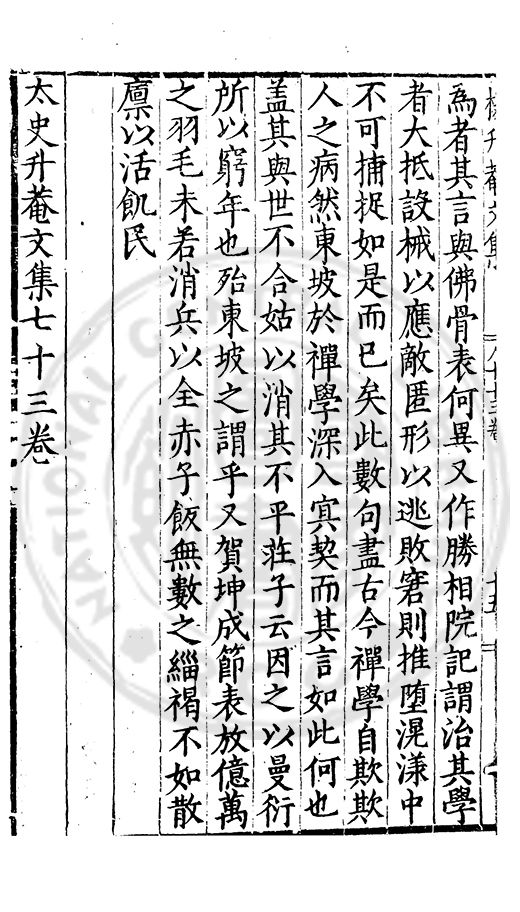 楊升菴文集
八七十三卷
十五
為者其言與佛骨表何異又作勝相院記謂治其學
者大抵設械以應敵匿形以逃敗窘則推墮滉漾中
不可捕捉如是而已矣此數句盡古今禪學自欺欺
人之病然東坡於禪學深入冥契而其言如此何也
盖其與世不合姑以消其不平莊子云因之以曼衍
所以窮年也殆東坡之謂乎又賀坤成節表放億萬
之羽毛未若消兵以全赤子飯無數之緇褐不如散
廪以活飢民
太史升菴文集七十三卷